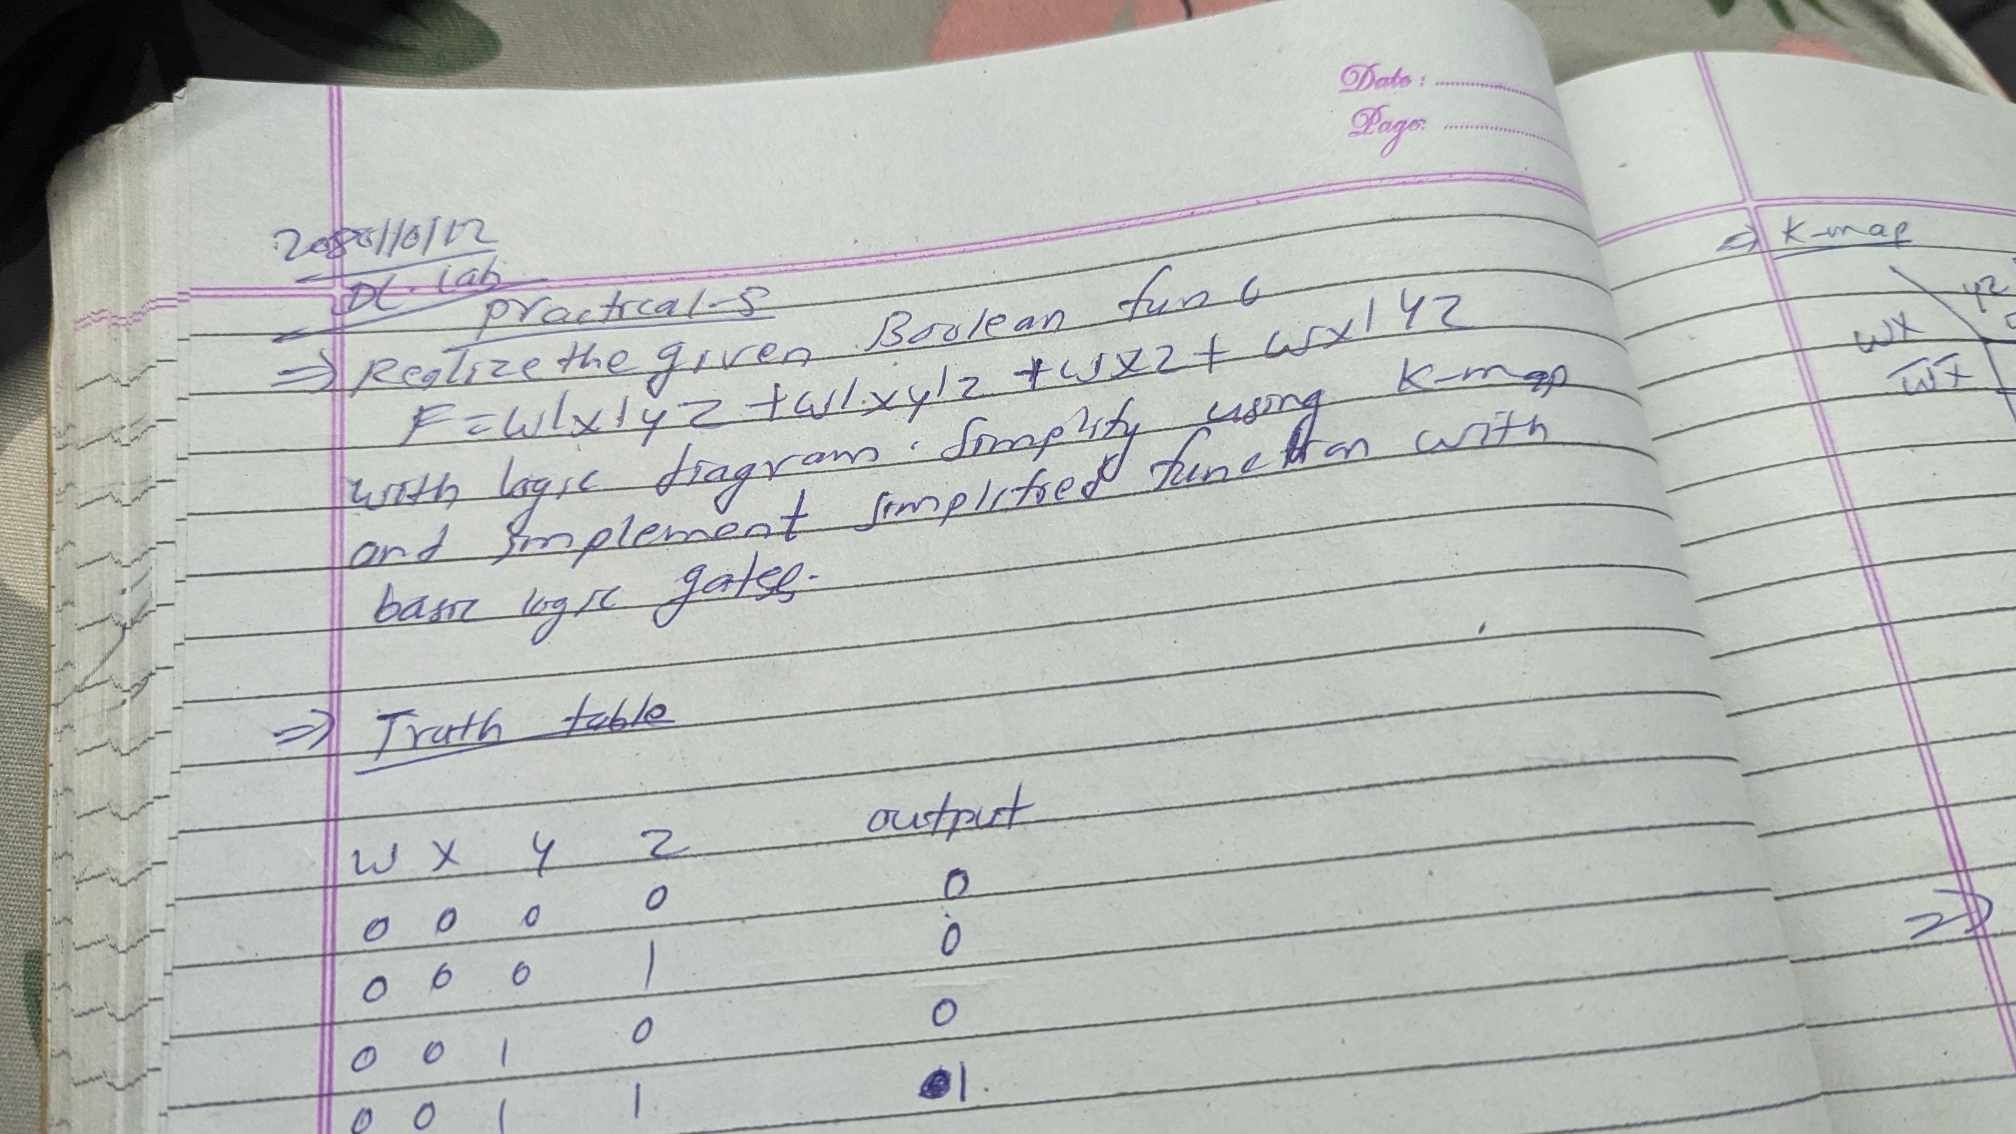 Date:
Page:
DL. Lab
practical-5
⇒ Realize the given Boolean func
F = w'x'yz + w'xy'z + wxz + wx'yz
with logic diagram. Simplify using K-map
and implement simplified function with
basic logic gates.
⇒ Truth table
w x y z output
0 0 0 0 0
0 0 0 1 0
0 0 1 0 0
0 0 1 1 1.
⇒ K-map
yz
wx
w̅x̅
⇒